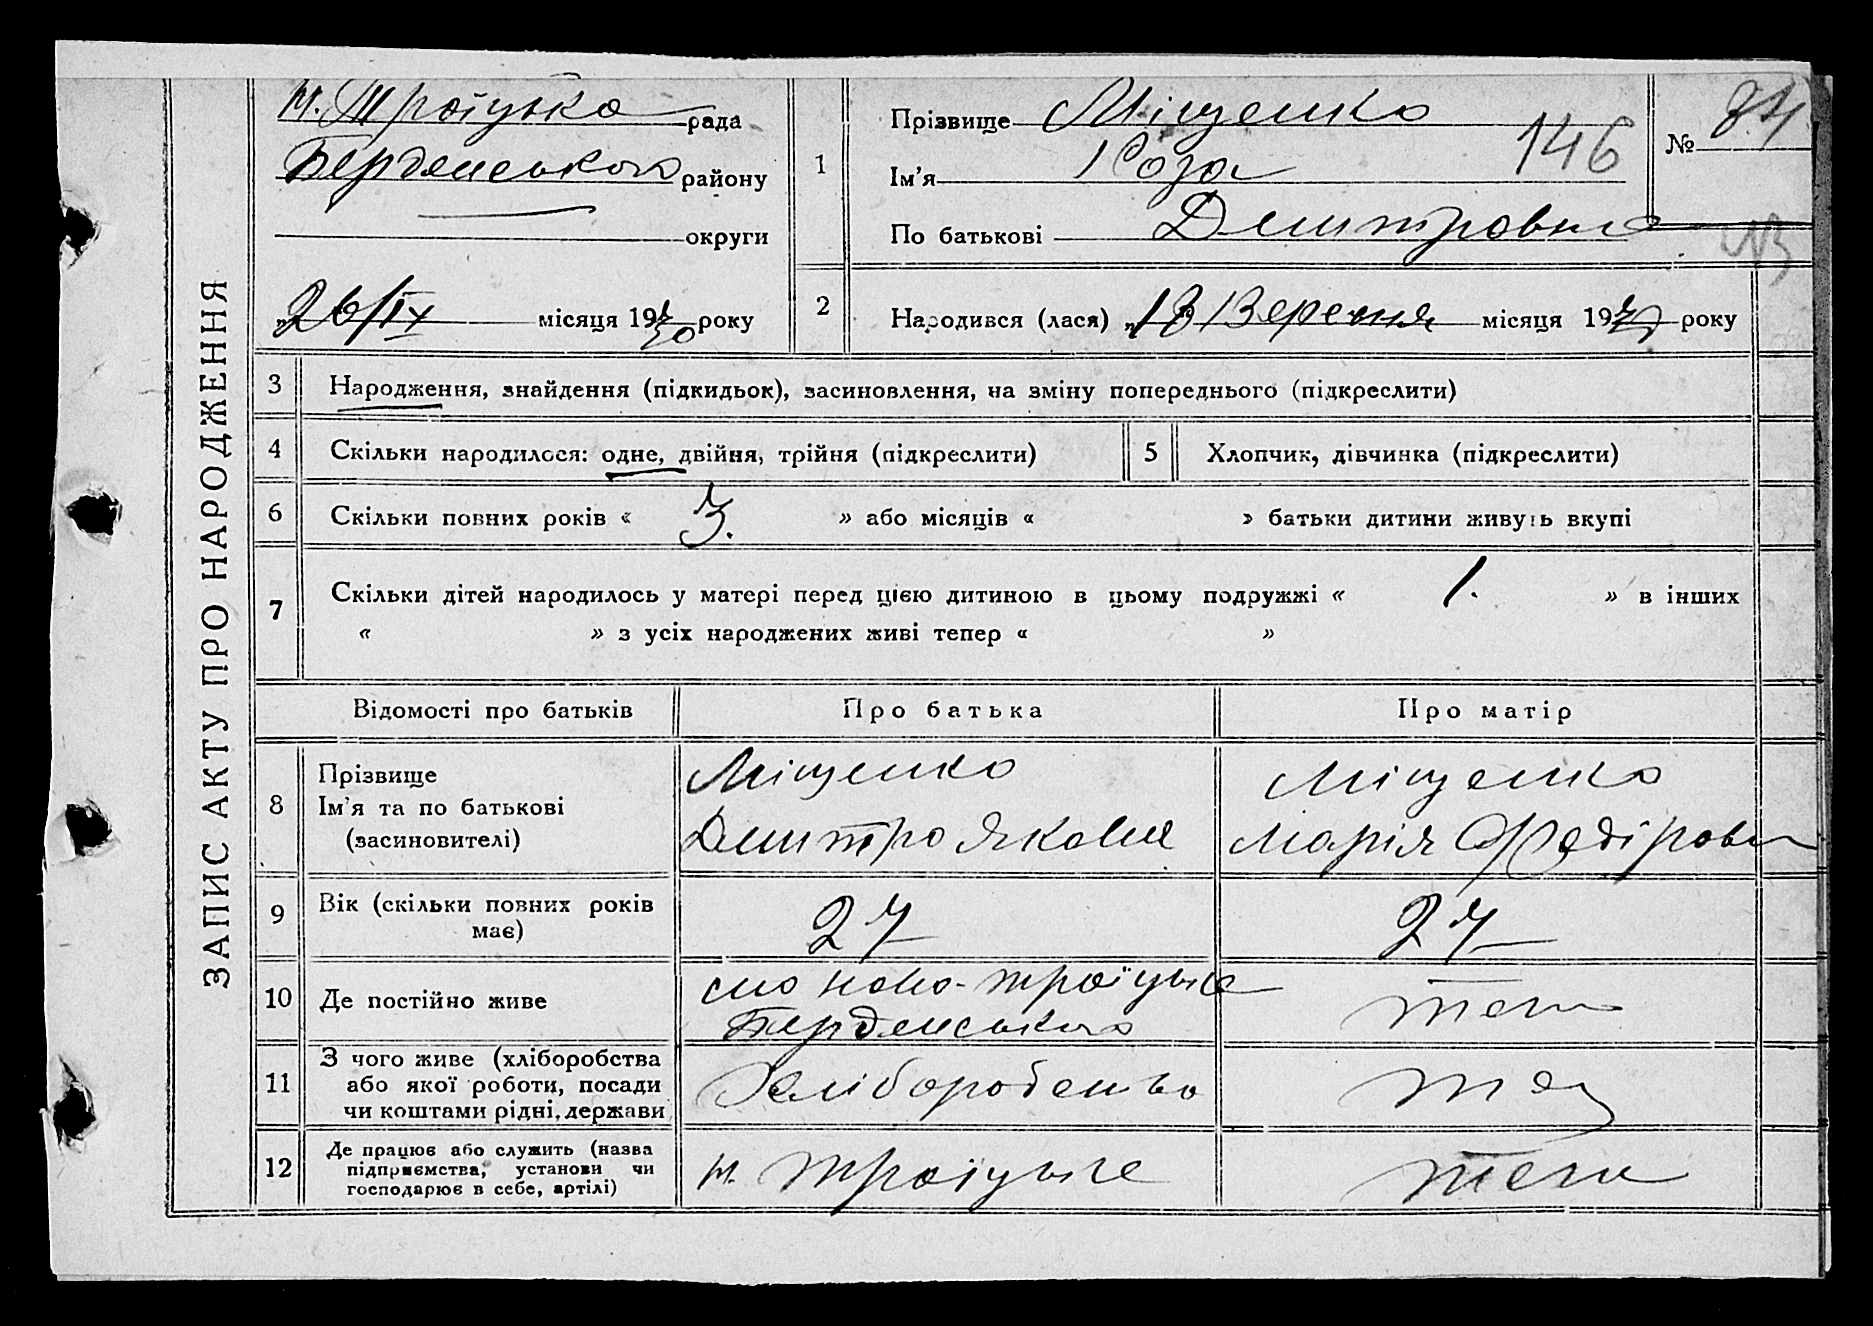 ЗАПИС АКТУ ПРО НАРОДЖЕННЯ
Н. Троїцька рада
Бердянського району
округи
„26/IX місяця 1930 року
1
Прізвище Міщенко
Ім’я Роза
По батькові Дмитровна
№ 84
146
2
Народився (лася) „13 Вересня місяця 19 року
3 Народження, знайдення (підкидьок), засиновлення, на зміну попереднього (підкреслити)
4 Скільки народилося: одне, двійня, трійня (підкреслити)
5 Хлопчик, дівчинка (підкреслити)
6 Скільки повних років « 3. » або місяців « » батьки дитини живуть вкупі
7 Скільки дітей народилось у матері перед цією дитиною в цьому подружжі « 1. » в інших
« » з усіх народжених живі тепер « »
Відомості про батьків Про батька Про матір
8 Прізвище
Ім’я та по батькові
(засиновителі)
Міщенко
Дмитро Якович
Міщенко
Марія Федіровн
9 Вік (скільки повних років
має)
27
27
10 Де постійно живе
село Ново-Троїцьке
Бердянського
теж
11 З чого живе (хліборобства
або якої роботи, посади
чи коштами рідні, держави
Хліборобство
теж
12 Де працює або служить (назва
підприємства, установи чи
господарює в себе, артілі)
Н. Троїцьке
теж